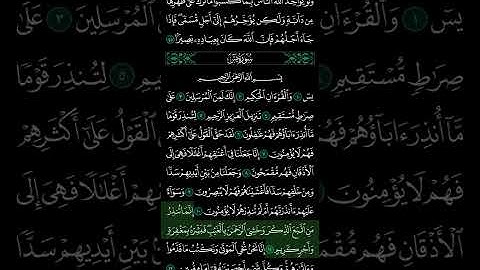 وَلَوْ يُؤَاخِذُ ٱللَّهُ ٱلنَّاسَ بِمَا كَسَبُوا۟ مَا تَرَكَ عَلَىٰ ظَهْرِهَا
مِن دَآبَّةٍ وَلَٰكِن يُؤَخِّرُهُمْ إِلَىٰٓ أَجَلٍ مُّسَمًّى فَإِذَا
جَآءَ أَجَلُهُمْ فَإِنَّ ٱللَّهَ كَانَ بِعِبَادِهِۦ بَصِيرًۢا ٤٥
سُورَةُ يسٓ
بِسْمِ ٱللَّهِ ٱلرَّحْمَٰنِ ٱلرَّحِيمِ
يسٓ ١ وَٱلْقُرْءَانِ ٱلْحَكِيمِ ٢ إِنَّكَ لَمِنَ ٱلْمُرْسَلِينَ ٣ عَلَىٰ
صِرَٰطٍ مُّسْتَقِيمٍ ٤ تَنزِيلَ ٱلْعَزِيزِ ٱلرَّحِيمِ ٥ لِتُنذِرَ قَوْمًا
مَّآ أُنذِرَ ءَابَآؤُهُمْ فَهُمْ غَٰفِلُونَ ٦ لَقَدْ حَقَّ ٱلْقَوْلُ عَلَىٰٓ أَكْثَرِهِمْ
فَهُمْ لَا يُؤْمِنُونَ ٧ إِنَّا جَعَلْنَا فِىٓ أَعْنَٰقِهِمْ أَغْلَٰلًا فَهِىَ إِلَى
ٱلْأَذْقَانِ فَهُم مُّقْمَحُونَ ٨ وَجَعَلْنَا مِنۢ بَيْنِ أَيْدِيهِمْ سَدًّا
وَمِنْ خَلْفِهِمْ سَدًّا فَأَغْشَيْنَٰهُمْ فَهُمْ لَا يُبْصِرُونَ ٩ وَسَوَآءٌ
عَلَيْهِمْ ءَأَنذَرْتَهُمْ أَمْ لَمْ تُنذِرْهُمْ لَا يُؤْمِنُونَ ١٠ إِنَّمَا تُنذِرُ
مَنِ ٱتَّبَعَ ٱلذِّكْرَ وَخَشِىَ ٱلرَّحْمَٰنَ بِٱلْغَيْبِ فَبَشِّرْهُ بِمَغْفِرَةٍ
وَأَجْرٍ كَرِيمٍ ١١ إِنَّا نَحْنُ نُحْىِ ٱلْمَوْتَىٰ وَنَكْتُبُ مَا قَدَّمُوا۟
وَءَاثَٰرَهُمْ وَكُلَّ شَىْءٍ أَحْصَيْنَٰهُ فِىٓ إِمَامٍ مُّبِينٍ ١٢